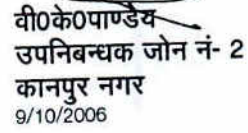 वी0के0पाण्डेय
उपनिबन्धक जोन नं- 2
कानपुर नगर
9/10/2006